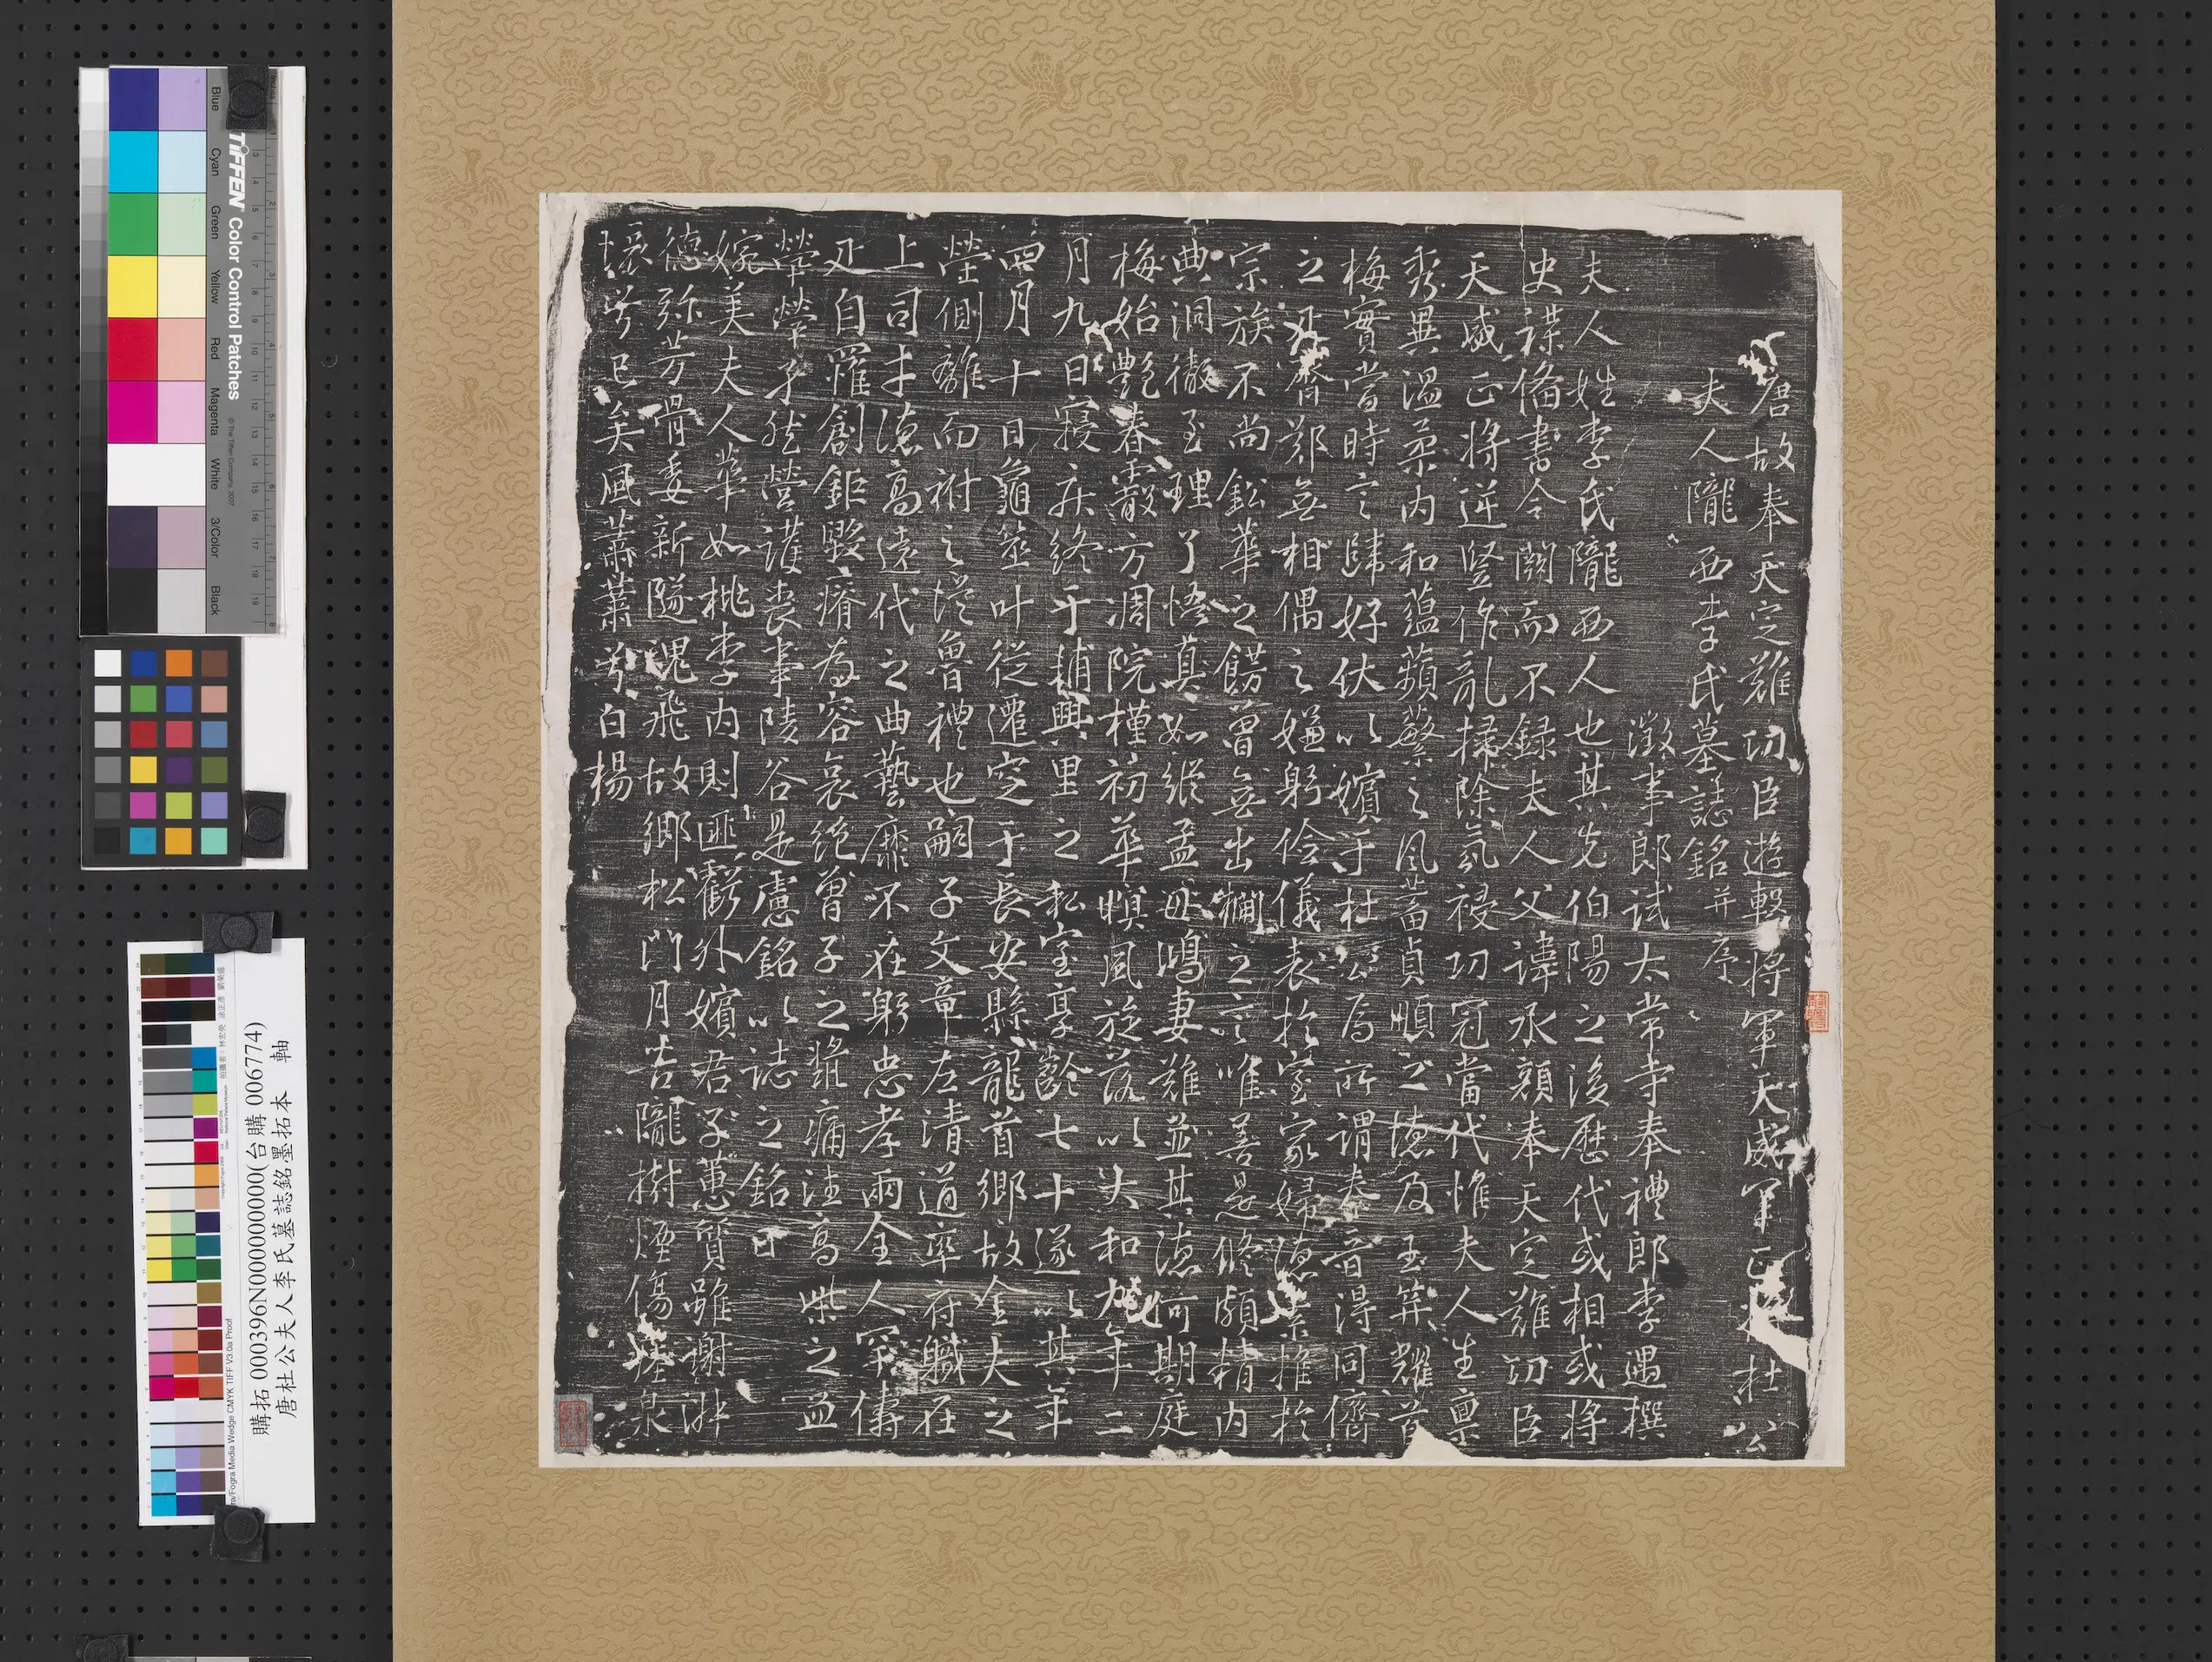 唐故奉天定難功臣遊擊將軍天威軍正杜公
夫人隴西李氏墓誌銘并序
徵事郎試太常寺奉禮郎李遇撰
夫人姓李氏隴西人也其先伯陽之後歷代或相或將
史諜備書今闕而不錄夫人父諱承顏奉天定難功臣
天威正將逆豎作亂掃除氛祲功冠當代惟夫人生禀
秀異溫柔內和蘊蘋蘩之風蓄貞順之德及玉笄耀首
梅實當時言歸好仗以嬪于杜公焉所謂秦晉得同儕
之齊鄭無相偶之嫌躬儉儀表於室家婦德推於
宗族不尚鈆華之餝曾無出梱之言唯善是脩頗精內
典洞徹至理了悟真如縱孟母鴻妻難並其德何期庭
梅始艷春霰方凋院槿初華暝風旋落以大和九年二
月九日寢疾終于輔興里之私室享齡七十遂以其年
四月十日龜筮叶從遷窆于長安縣龍首鄉故金夫之
塋側離而祔之從魯禮也嗣子文章左清道率府職在
上司才德高遠代之曲藝靡不在躬忠孝兩全人罕儔
疋自罹創鉅毀瘠為容哀絕曾子之漿痛洼高柴之血
煢煢孑然營護喪事陵谷是慮銘以誌之銘曰
婉美夫人華如桃李內則匪虧外嬪君子蕙質雖謝淋
德弥芳骨委新隧魂飛故鄉松門月苦隴樹煙傷泉
壤兮已矣風蕭蕭兮白楊
購拓 000396N000000000(台購 006774)
唐杜公夫人李氏墓誌銘墨拓本 軸
TIFFEN Color Control Patches
© The Tiffen Company, 2007
Blue
Cyan
Green
Yellow
Red
Magenta
White
3/Color
Black
Ugra/Fogra Media Wedge CMYK TIFF V3.0a Proof